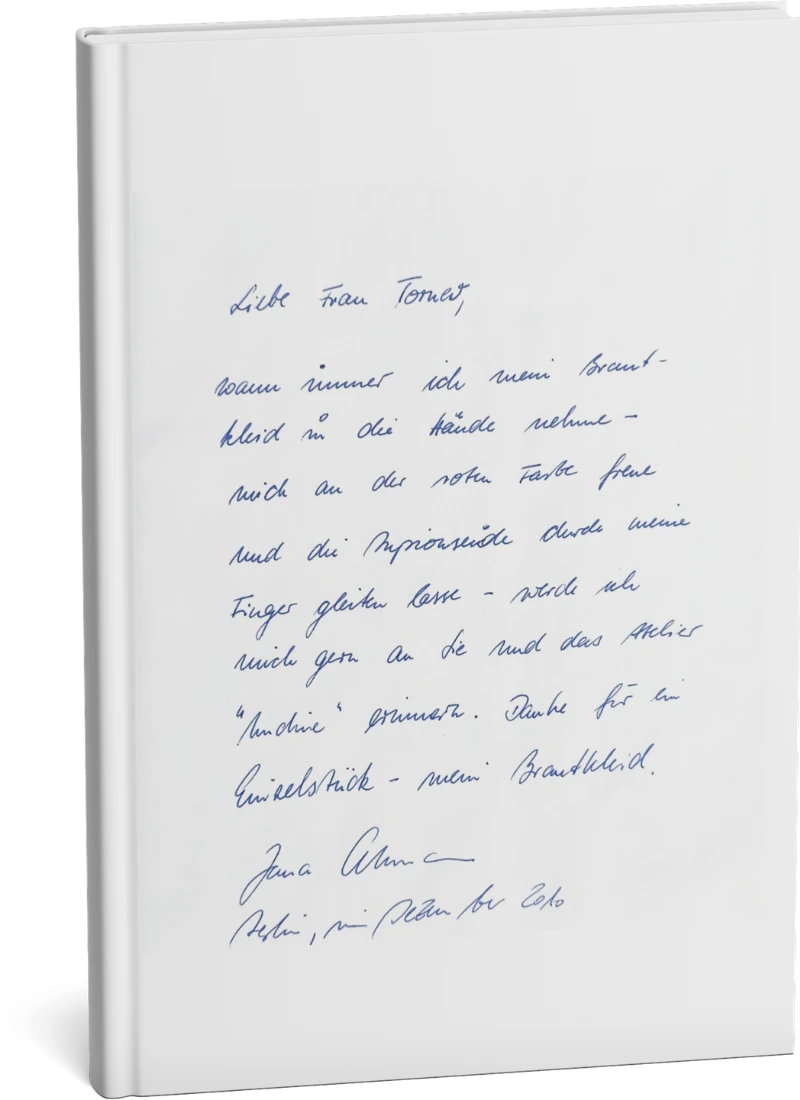 Liebe Frau Torner,
wann immer ich mein Braut-
kleid in die Hände nehme –
mich an der roten Farbe freue
und die Dupionseide durch meine
Finger gleiten lasse – werde ich
mich gern an Sie und das Atelier
erinnern. Danke für ein
Einzelstück – mein Brautkleid.
Jana
Berlin, im Dezember 2010